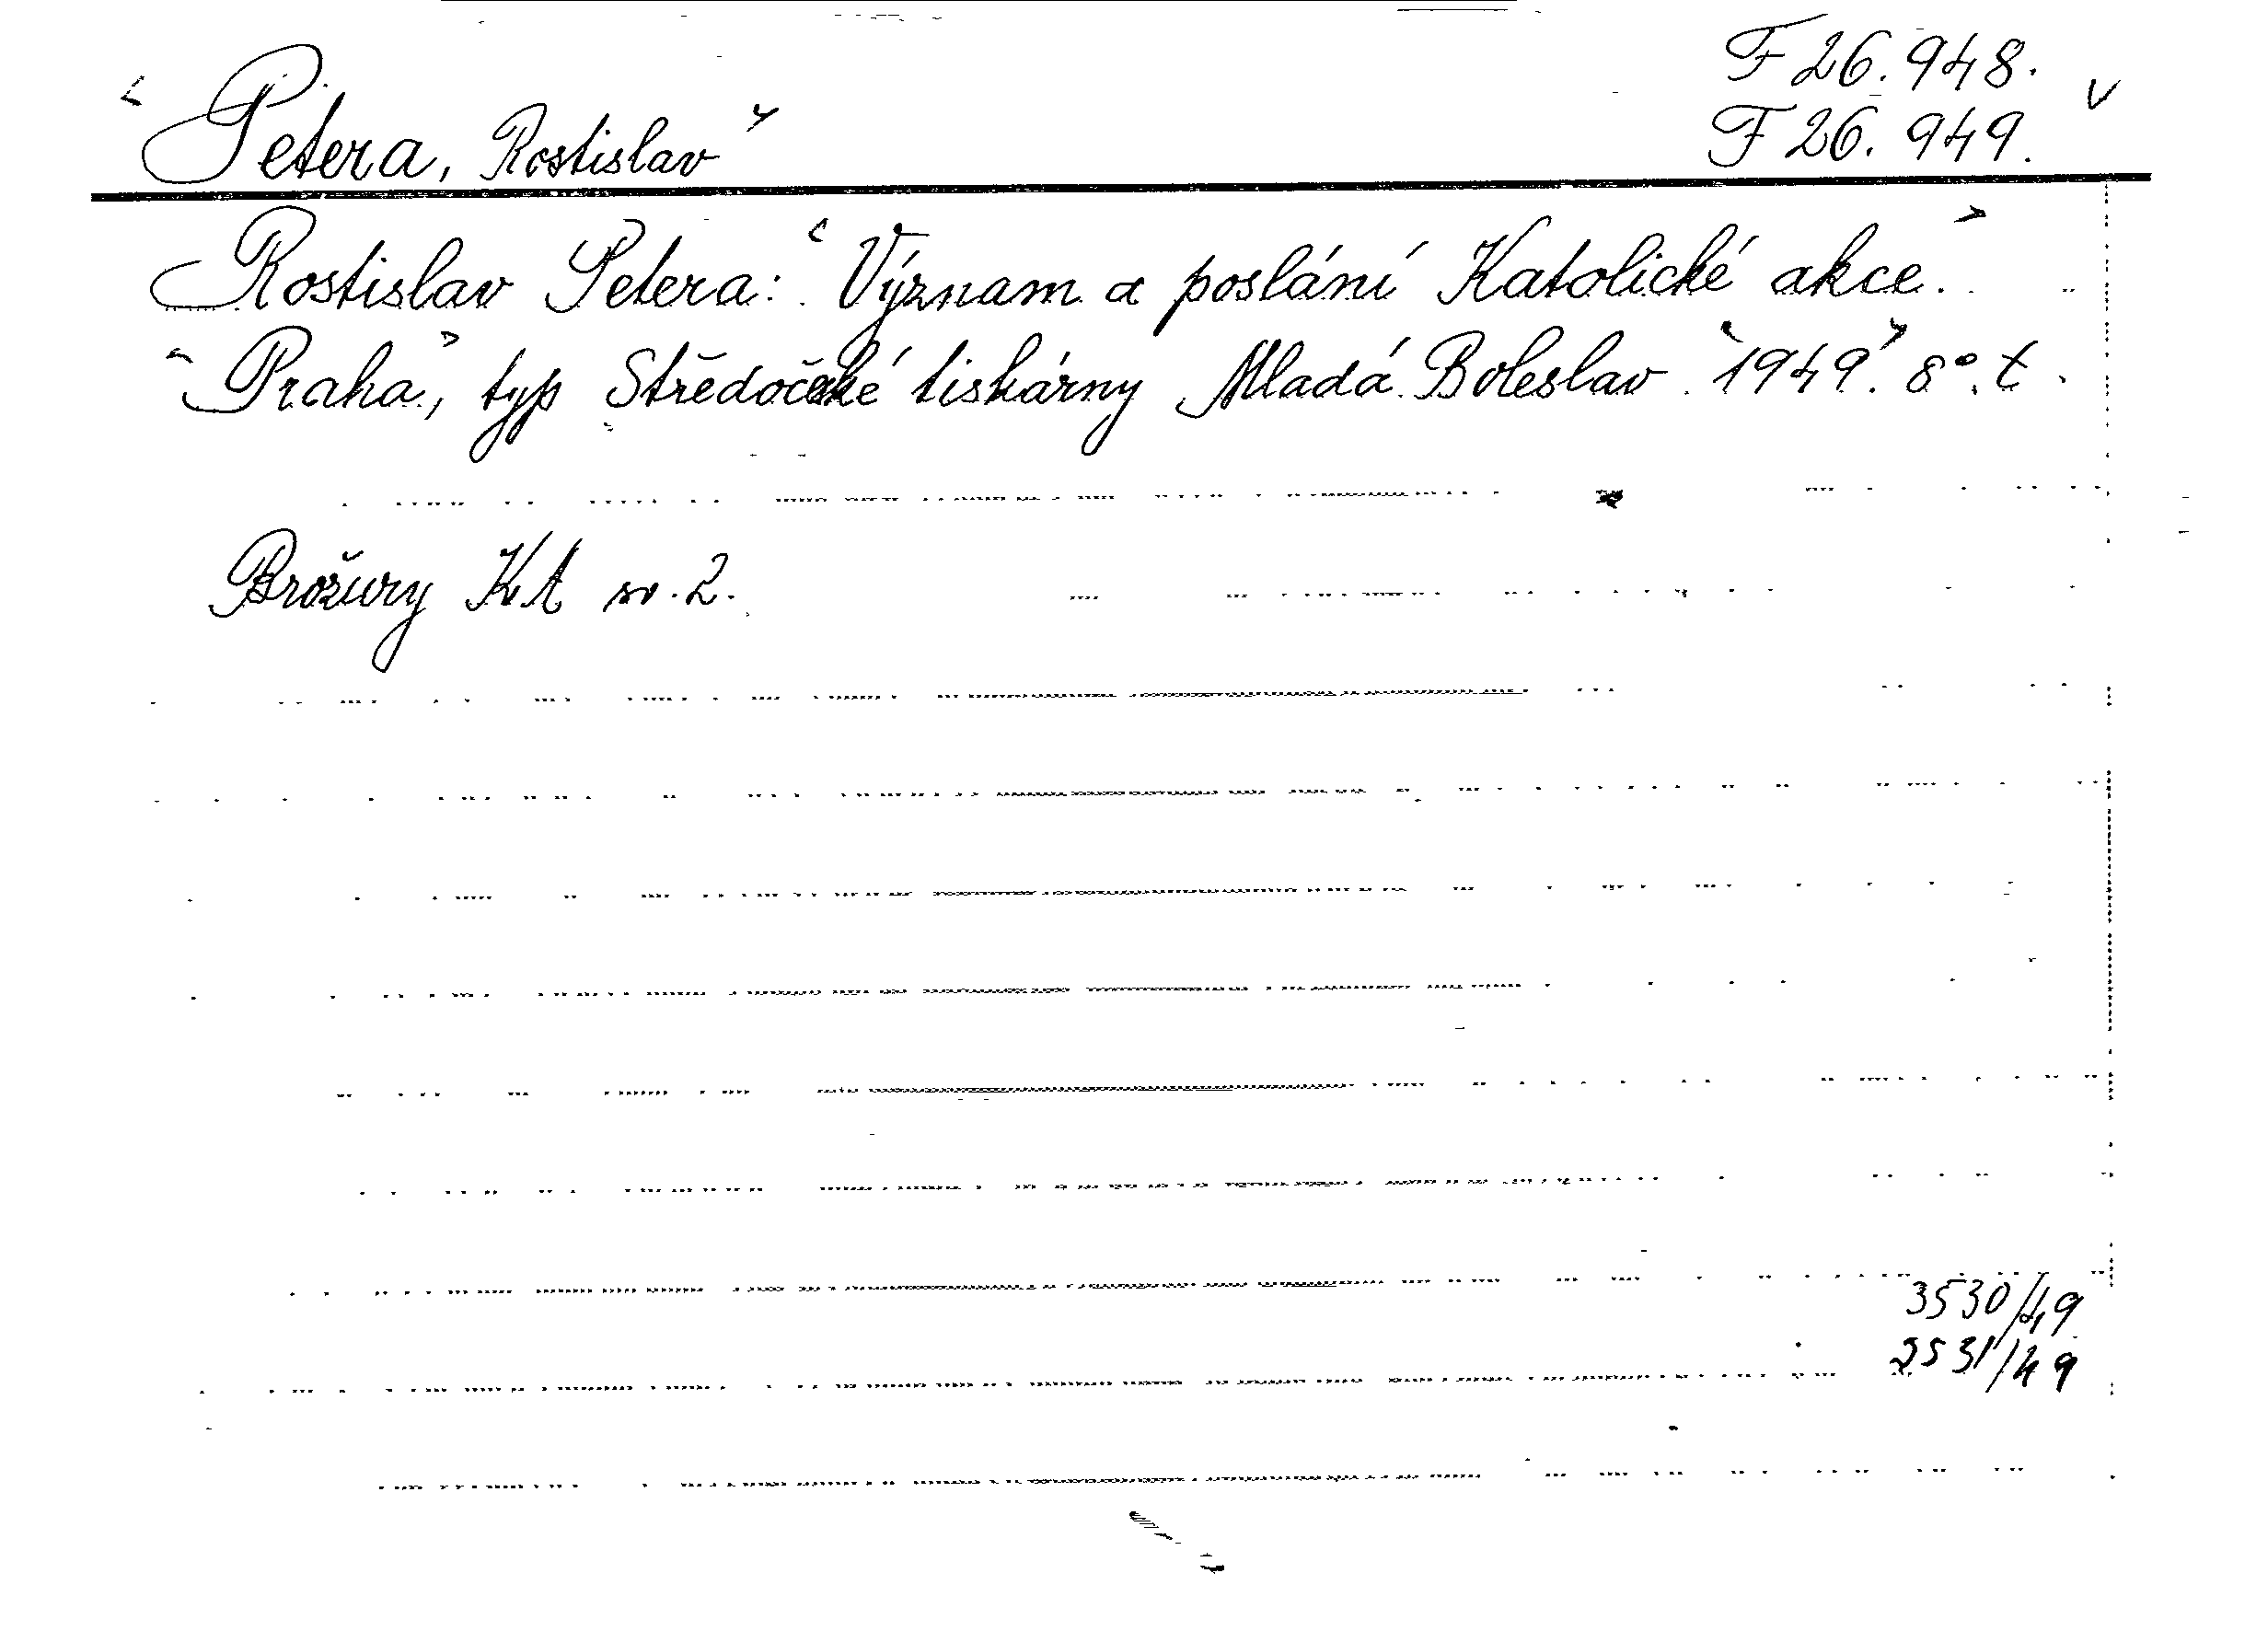 F 26.948.
F 26.949.
Petera, Rostislav
Rostislav Petera: Význam a poslání Katolické akce.
Praha, typ Středočeské tiskárny Mladá Boleslav 1949. 8°. t.
Brožury KA sv. 2.
3530/49
2531/49